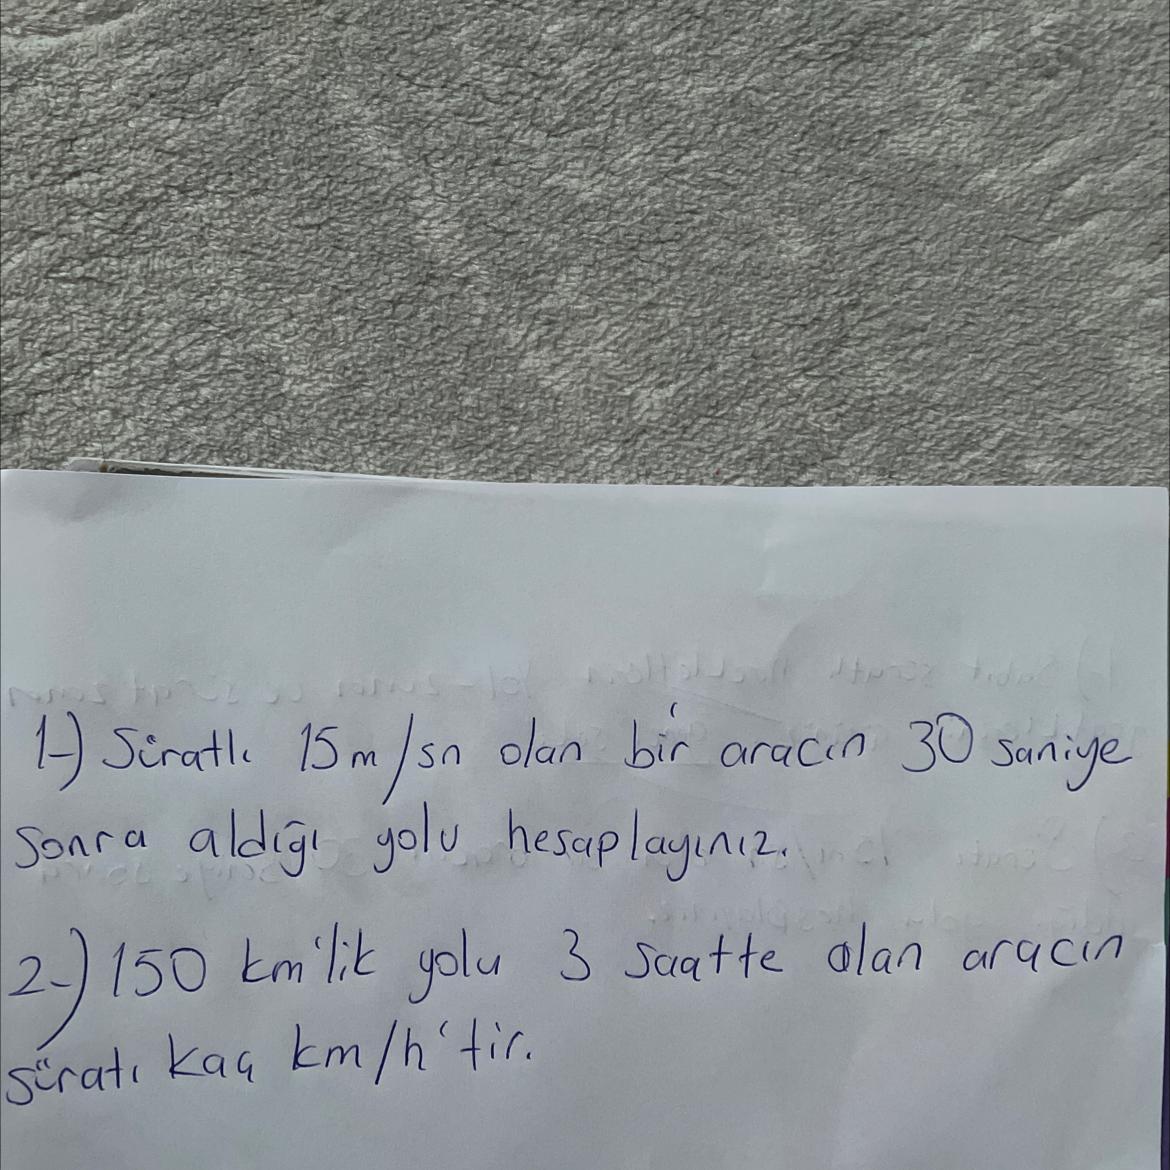 1-) Süratlı 15 m/sn olan bir aracın 30 saniye
sonra aldığı yolu hesaplayınız.
2-) 150 km'lik yolu 3 saatte alan aracın
süratı kaç km/h'tir.